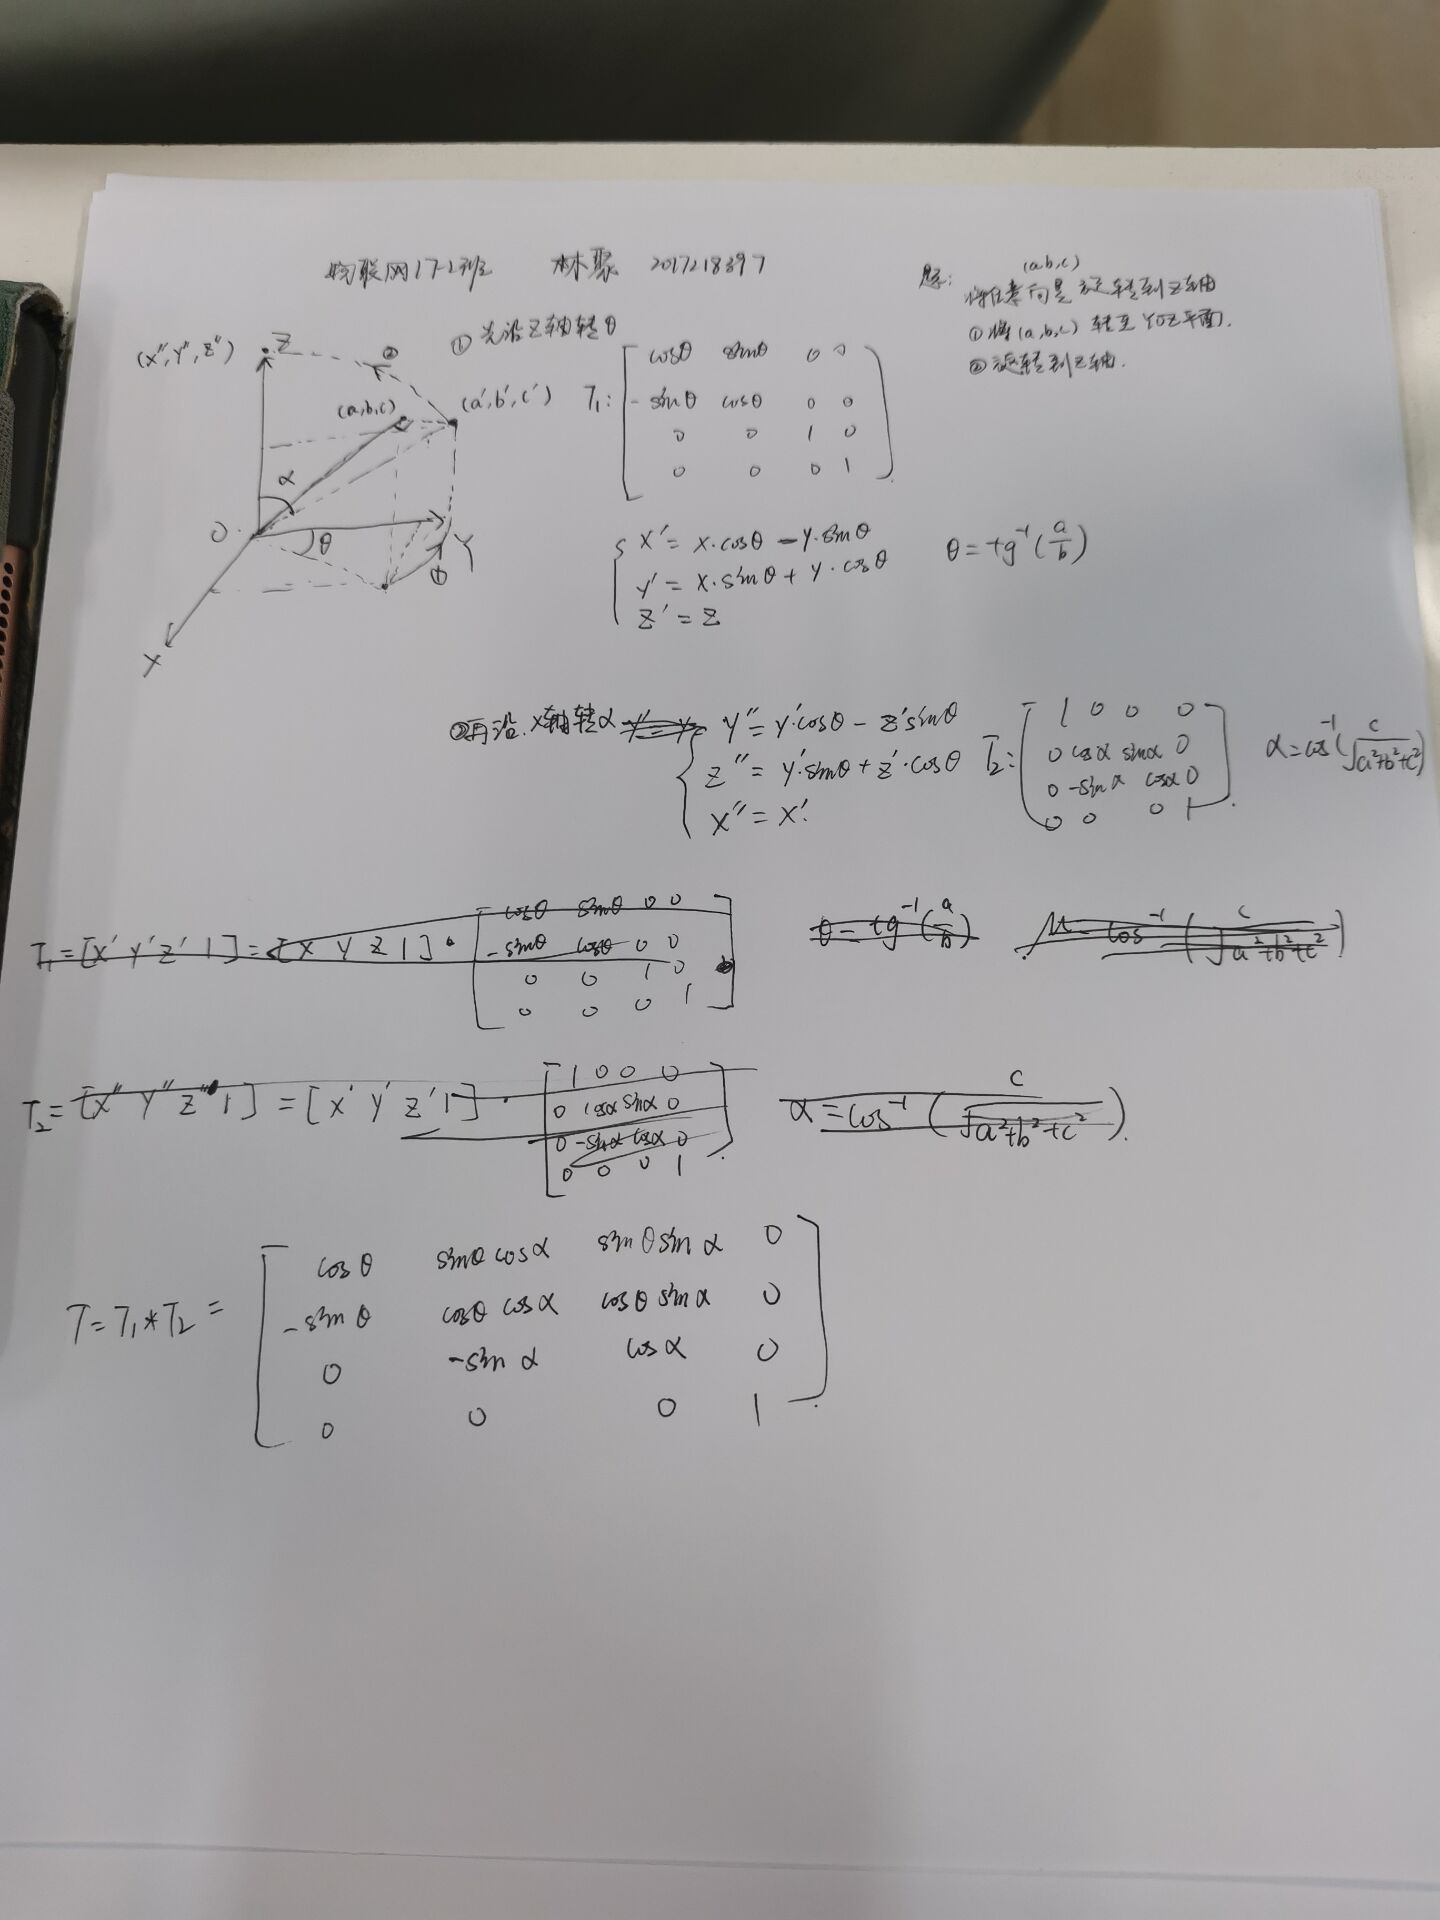 物联网17-2班 林聚 2017218397
题: 将任意向量(a,b,c)旋转到Z轴
① 将(a,b,c) 转至 YOZ平面.
② 旋转到Z轴.
① 先沿Z轴转θ
(X'', Y'', Z'') Z ②
(a,b,c) (a', b', c')
α
O θ Y ①
X
T₁: [ cosθ sinθ 0 0
-sinθ cosθ 0 0
0 0 1 0
0 0 0 1 ].
{ X' = X·cosθ - Y·sinθ
Y' = X·sinθ + Y·cosθ
Z' = Z
θ = tg⁻¹(a/b)
②再沿X轴转α
{ Y'' = Y'cosθ - Z'sinθ
Z'' = Y'sinθ + Z'·cosθ
X'' = X'.
T₂: [ 1 0 0 0
0 cosα sinα 0
0 -sinα cosα 0
0 0 0 1 ].
α = cos⁻¹(c/√(a²+b²+c²))
T₁ = [X' Y' Z' 1] = [X Y Z 1] · [ cosθ sinθ 0 0
-sinθ cosθ 0 0
0 0 1 0
0 0 0 1 ]
θ = tg⁻¹(a/b) cos⁻¹(c/√(a²+b²+c²))
T₂ = [X'' Y'' Z'' 1] = [X' Y' Z' 1] · [ 1 0 0 0
0 cosα sinα 0
0 -sinα cosα 0
0 0 0 1 ].
α = cos⁻¹(c/√(a²+b²+c²)).
T = T₁*T₂ = [ cosθ sinθ cosα sinθ sinα 0
-sinθ cosθ cosα cosθ sinα 0
0 -sinα cosα 0
0 0 0 1 ].